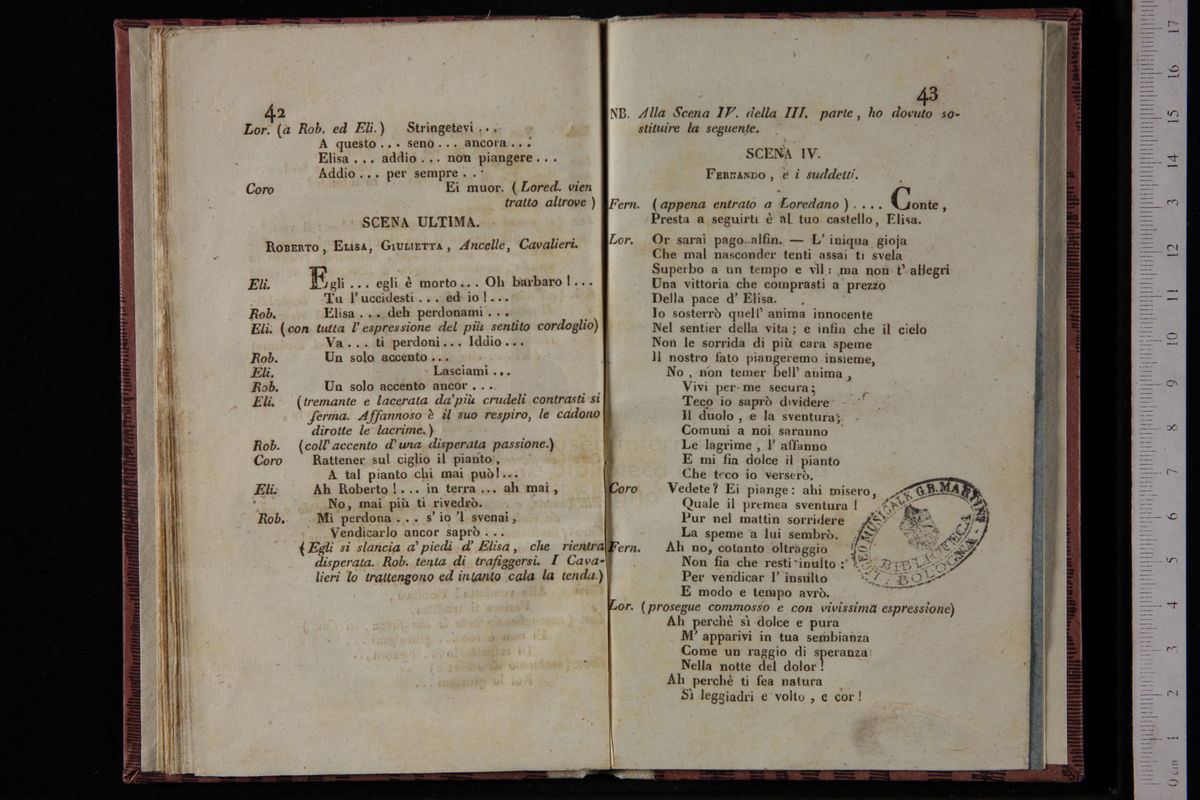 42
Lor. (a Rob. ed Eli.) Stringetevi . . .
A questo . . . seno . . . ancora . . .
Elisa . . . addio . . . non piangere . . .
Addio . . . per sempre . . .
Coro Ei muor. (Lored. vien
tratto altrove )
SCENA ULTIMA.
ROBERTO, ELISA, GIULIETTA, Ancelle, Cavalieri.
Eli. Egli . . . egli è morto . . . Oh barbaro ! . . .
Tu l' uccidesti . . . ed io ! . . .
Rob. Elisa . . . deh perdonami . . .
Eli. (con tutta l' espressione del più sentito cordoglio)
Va . . . ti perdoni . . . Iddio . . .
Rob. Un solo accento . . .
Eli. Lasciami . . .
Rob. Un solo accento ancor . . .
Eli. (tremante e lacerata da' più crudeli contrasti si
ferma. Affannoso è il suo respiro, le cadono
dirotte le lacrime.)
Rob. (coll' accento d' una disperata passione.)
Coro Rattener sul ciglio il pianto,
A tal pianto chi mai può! . . .
Eli. Ah Roberto ! . . . in terra . . . ah mai,
No, mai più ti rivedrò.
Rob. Mi perdona . . . s' io 'l svenai,
Vendicarlo ancor saprò . . .
(Egli si slancia a' piedi d' Elisa, che rientra
disperata. Rob. tenta di trafiggersi. I Cava-
lieri lo trattengono ed intanto cala la tenda.)
43
NB. Alla Scena IV. della III. parte, ho dovuto so-
stituire la seguente.
SCENA IV.
FERNANDO, e i suddetti.
Fern. (appena entrato a Loredano) . . . . Conte,
Presta a seguirti è al tuo castello, Elisa.
Lor. Or sarai pago alfin. — L' iniqua gioja
Che mal nasconder tenti assai ti svela
Superbo a un tempo e vil: ma non t' allegri
Una vittoria che comprasti a prezzo
Della pace d' Elisa.
Io sosterrò quell' anima innocente
Nel sentier della vita; e infin che il cielo
Non le sorrida di più cara speme
Il nostro fato piangeremo insieme,
No, non temer bell' anima,
Vivi per me secura;
Teco io saprò dividere
Il duolo, e la sventura;
Comuni a noi saranno
Le lagrime, l' affanno
E mi fia dolce il pianto
Che teco io verserò.
Coro Vedete? Ei piange: ahi misero,
Quale il premea sventura !
Pur nel mattin sorridere
La speme a lui sembrò.
Fern. Ah no, cotanto oltraggio
Non fia che resti inulto :
Per vendicar l' insulto
E modo e tempo avrò.
Lor. (prosegue commosso e con vivissima espressione)
Ah perchè sì dolce e pura
M' apparivi in tua sembianza
Come un raggio di speranza
Nella notte del dolor !
Ah perchè ti fea natura
Sì leggiadri e volto, e cor !
LICEO MUSICALE G.B. MARTINI
BIBLIOTECA
- BOLOGNA -
0 cm 1 2 3 4 5 6 7 8 9 10 11 12 13 14 15 16 17